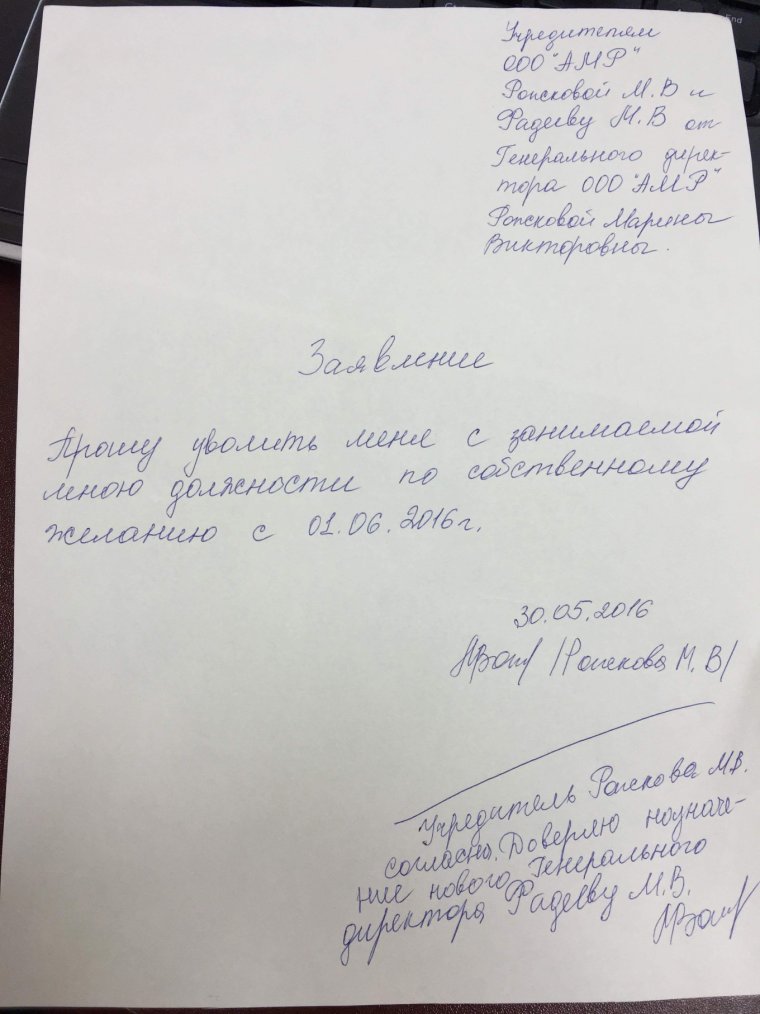 Учредителям
ООО "АМР"
Рожсковой М.В и
Фадееву М.В от
Генерального дирек-
тора ООО "АМР"
Марины
Викторовны.
Заявление
Прошу уволить меня с занимаемой
мною должности по собственному
желанию с 01.06.2016г.
30.05.2016
М.В/
Учредитель М.В.
согласна. Доверяю назначе-
ние нового Генерального
директора Фадееву М.В.